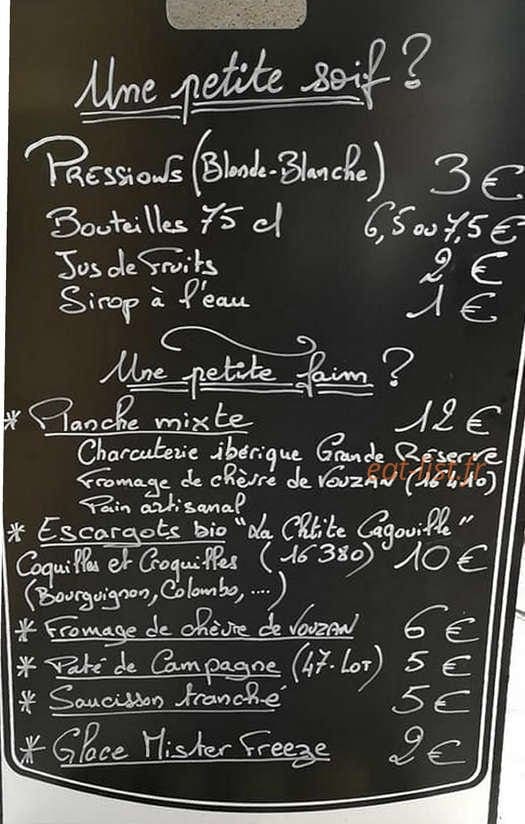 Une petite soif ?
PRESSIONS (Blonde-Blanche) 3 €
Bouteilles 75 cl 6,5 ou 7,5 €
Jus de Fruits 2 €
Sirop à l'eau 1 €
Une petite faim ?
* Planche mixte 12 €
Charcuterie ibérique Grande Réserve
Fromage de chèvre de VOUZAN (16410)
Pain artisanal
eat-list.fr
* Escargots bio "La Chtite Cagouille"
Coquilles et Croquilles (16380) 10 €
(Bourguignon, Colombo, ....)
* Fromage de chèvre de VOUZAN 6 €
* Paté de Campagne (47-LOT) 5 €
* Saucisson tranché 5 €
* Glace Mister Freeze 2 €